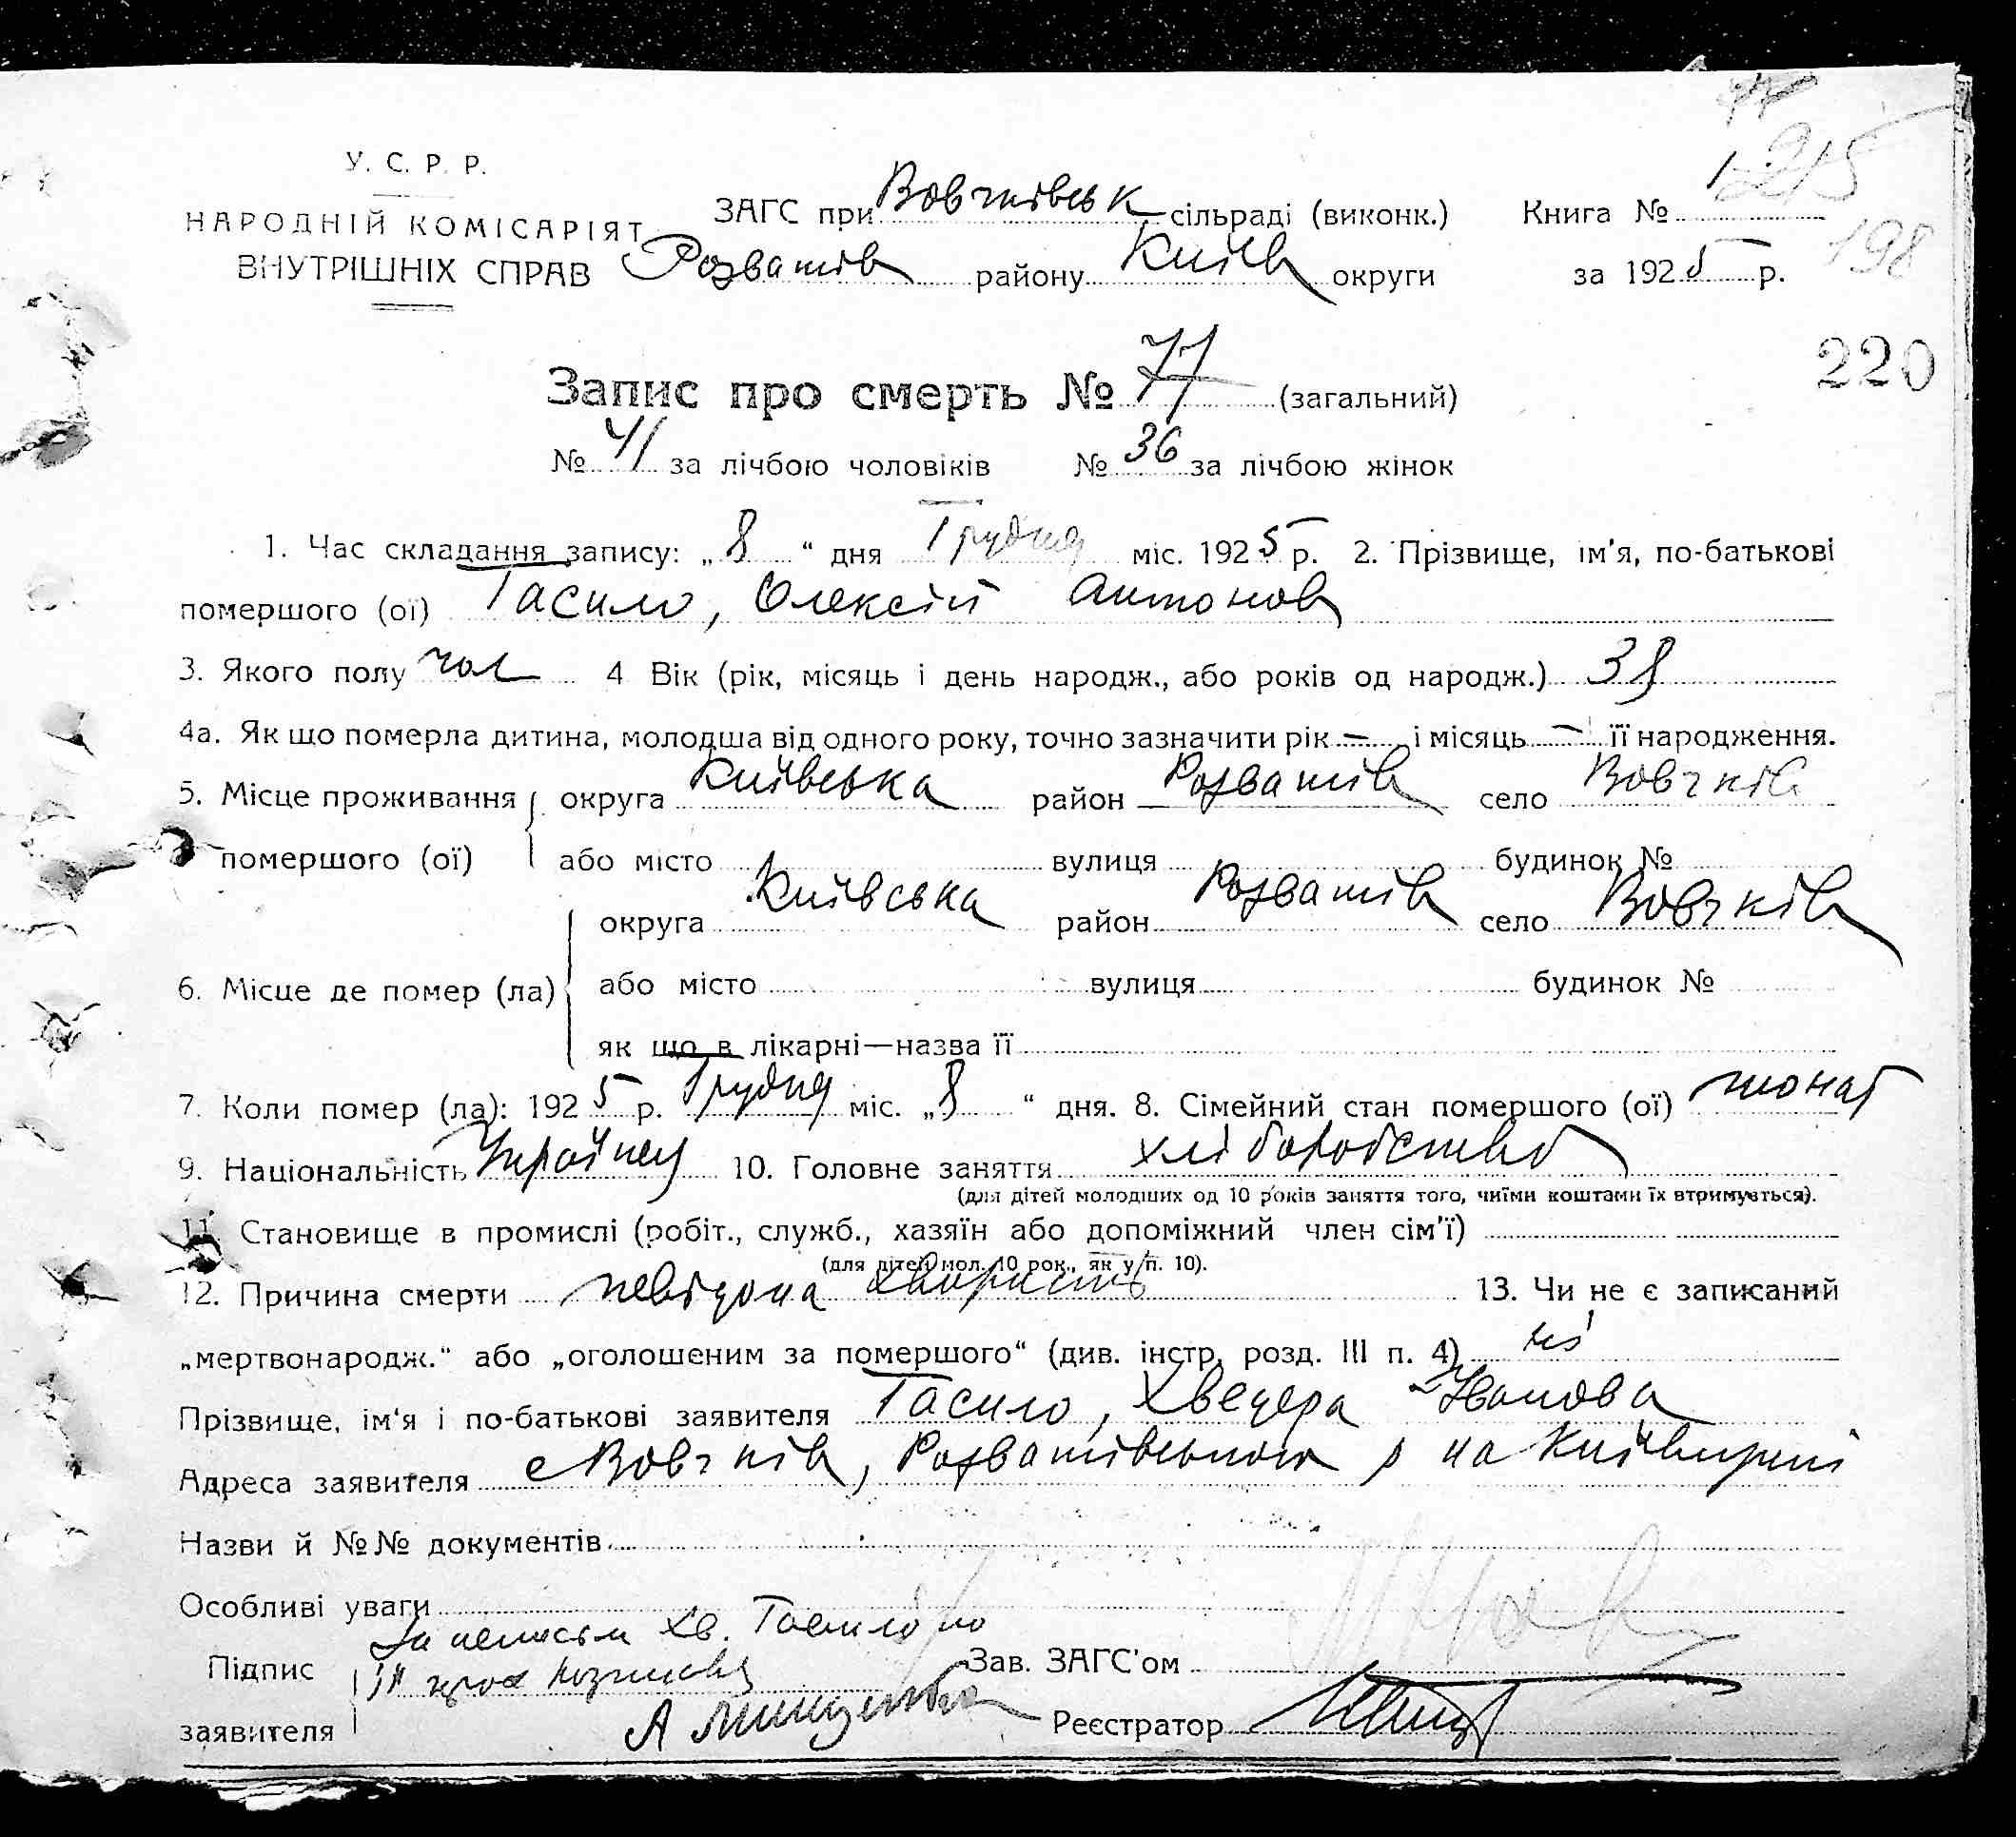 У. С. Р. Р.
НАРОДНІЙ КОМІСАРІЯТ
ВНУТРІШНІХ СПРАВ
ЗАГС при Вовчківськ сільраді (виконк.)
Розважів район​у Київ округи
Книга № 1
215
198
за 1925 р.
220
Запис про смерть № 77 (загальний)
№ 41 за лічбою чоловіків № 36 за лічбою жінок
1. Час складання запису: „8“ дня Грудня міс. 1925 р. 2. Прізвище, ім'я, по-батькові
помершого (ої) Гасило, Олексій Антонов
3. Якого полу чол 4 Вік (рік, місяць і день народж., або років од народж.) 38
4а. Як що померла дитина, молодша від одного року, точно зазначити рік — і місяць — її народження.
5. Місце проживання округа Київська район Розважів село Вовчків
помершого (ої) або місто вулиця будинок №
округа Київська район Розважів село Вовчків
6. Місце де помер (ла) або місто вулиця будинок №
як що в лікарні—назва її
7. Коли помер (ла): 1925 р. Грудня міс. „8“ дня. 8. Сімейний стан помершого (ої) жонат
9. Національність Українец 10. Головне заняття хліборобство
(для дітей молодших од 10 років заняття того, чиїми коштами їх втримується).
11. Становище в промислі (робіт., служб., хазяїн або допоміжний член сім'ї)
(для дітей мол. 10 рок., як у п. 10).
12. Причина смерти невідома хворість 13. Чи не є записаний
„мертвонародж.“ або „оголошеним за помершого“ (див. інстр. розд. III п. 4) ні
Прізвище, ім'я і по-батькові заявителя Гасило, Хведора Іванова
Адреса заявителя с Вовчків, Розважівського р на Київщині
Назви й №№ документів
Особливі уваги
За неписьм Хв. Гасило по
Підпис
заявителя
Зав. ЗАГС'ом
Реєстратор